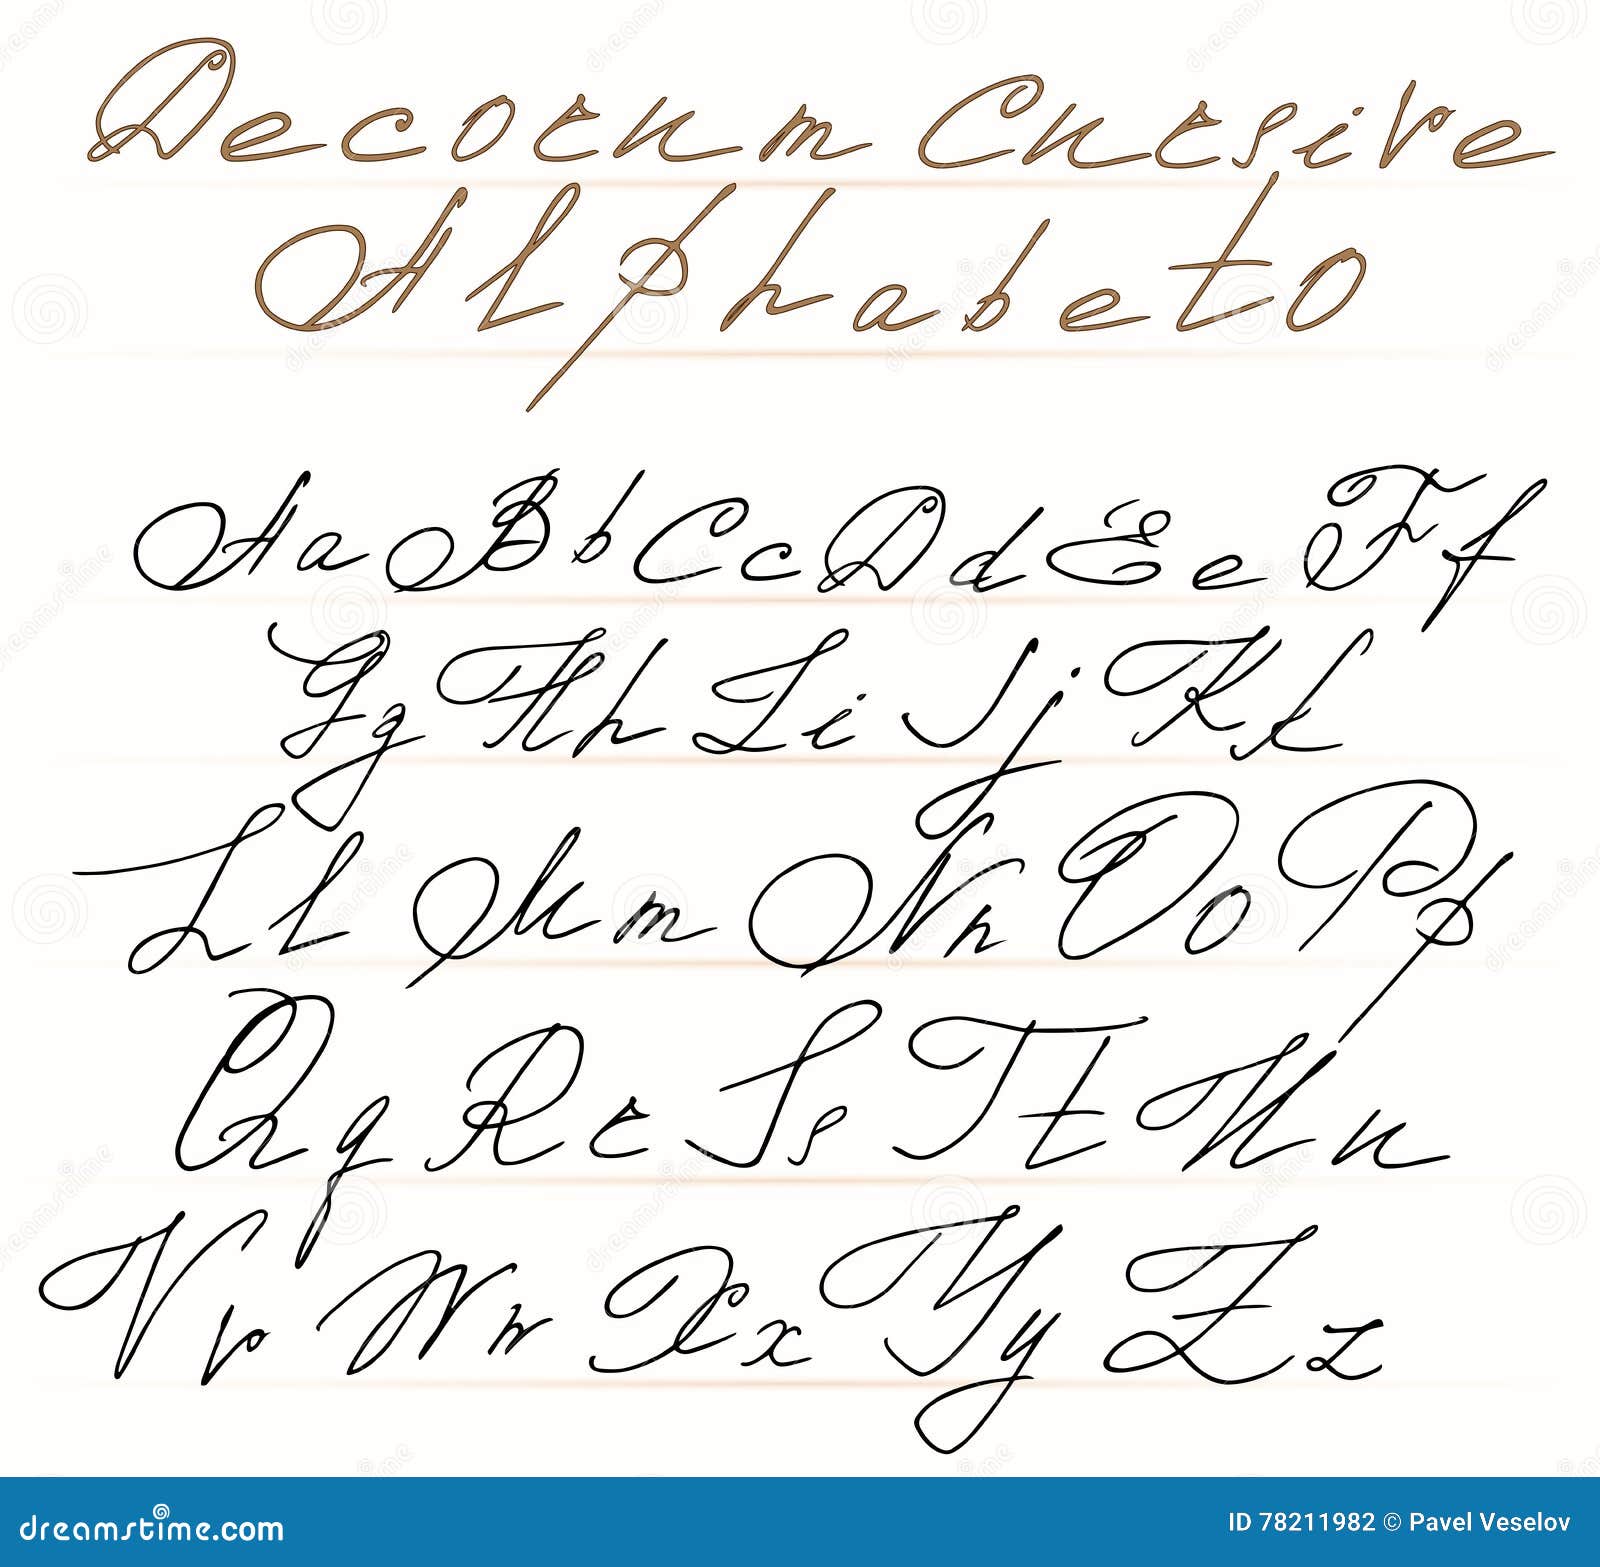 Decorum Cursive
Alphabeto
Aa Bb Cc Dd Ee Ff
Gg Hh Ii Jj Kk
Ll Mm Nn Oo Pp
Qq Rr Ss Tt Uu
Vv Ww Xx Yy Zz
dreamstime.com ID 78211982 © Pavel Veselov